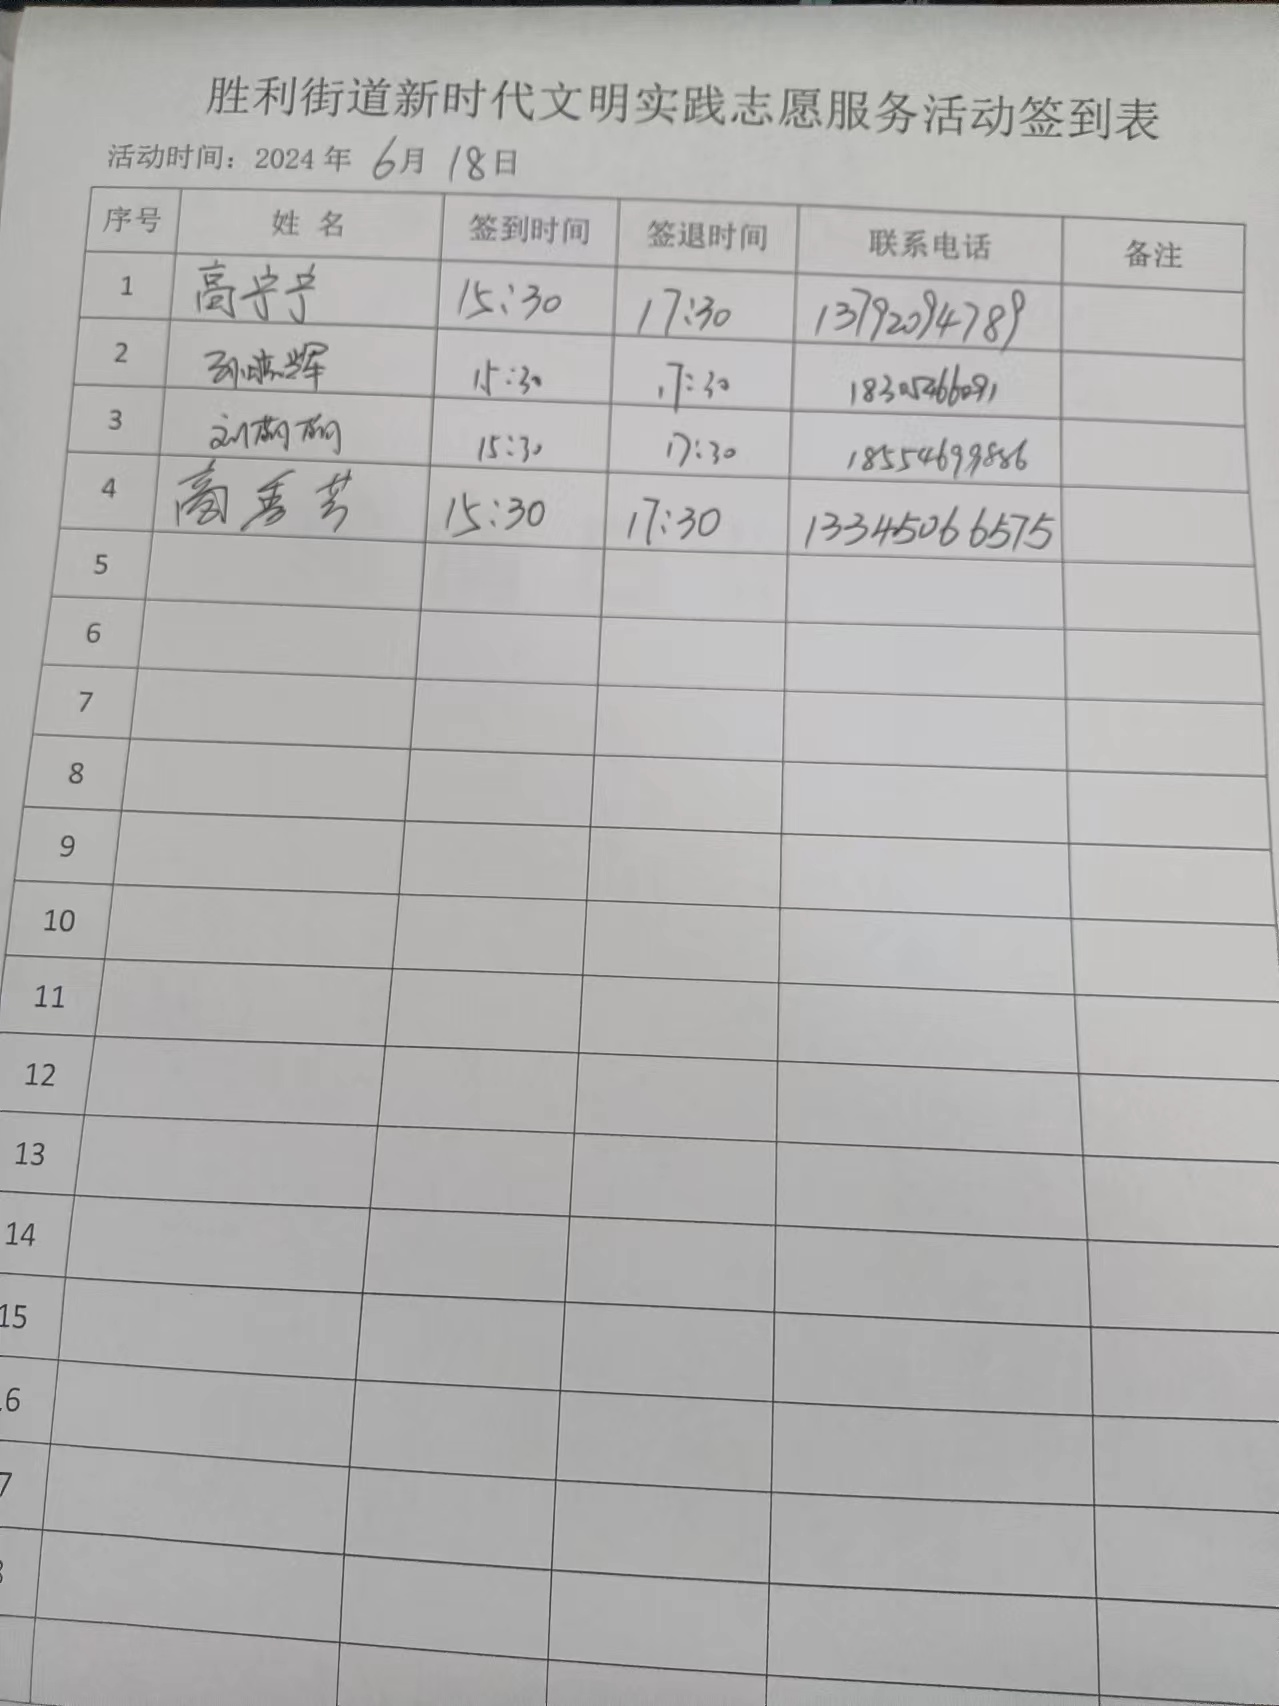 胜利街道新时代文明实践志愿服务活动签到表
活动时间：2024 年 6月 18日
序号 姓 名 签到时间 签退时间 联系电话 备注
1 高宁宁 15:30 17:30 13792094789
2 15:30 17:30 18305466091
3 刘 15:30 17:30 18554699886
4 高秀芳 15:30 17:30 13345066575
5
6
7
8
9
10
11
12
13
14
15
6
7
8